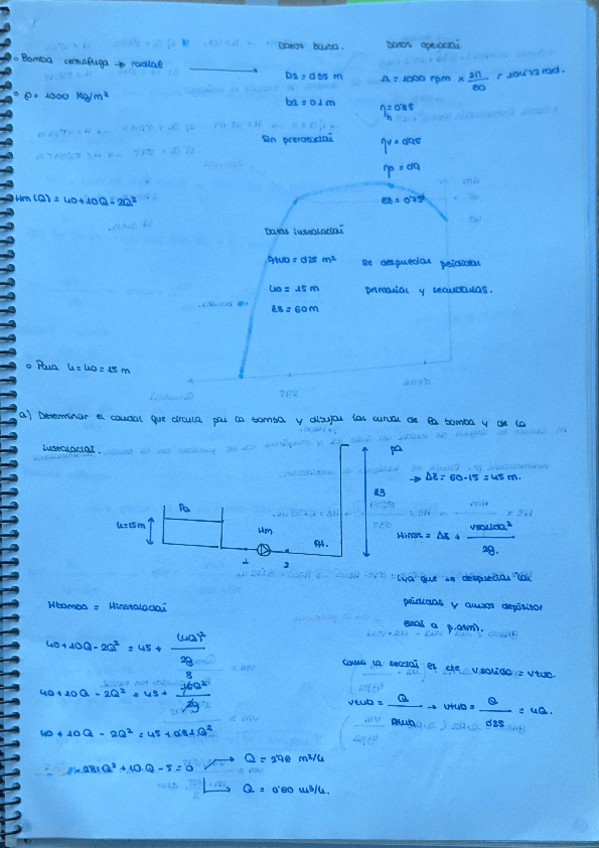 Datos bomba. Datos operación
o Bomba centrífuga → radial → D2 = 0'85 m n = 1000 rpm × 2π/60 = 104'72 rad.
o ρ = 1000 Kg/m³ b2 = 0'1 m
Sin prerotación ηv = 0'95
Hm(Q) = 40 + 10Q - 2Q²
Datos instalación
Atub = 0'25 m² Se desprecian pérdidas
h0 = 15 m primarias y secundarias.
z3 = 60 m
o Para h = h0 = 15 m
a) Determinar el caudal que circula por la bomba y dibujar las curvas de la bomba y de la
instalación.
Pa
→ Δz = 60 - 15 = 45 m.
Pa
z3
h = 15m Hm At. Hinst = Δz + vsalida²/2g.
1 2
(ya que se desprecian las
pérdidas y ambos depósitos
están a p.atm).
Hbomba = Hinstalación
40 + 10Q - 2Q² = 45 + (4Q)²/2g
Como la sección es cte vsalida = vtub.
40 + 10Q - 2Q² = 45 + 16Q²/2g
vtub = Q/Atub → vtub = Q/0'25 = 4Q.
40 + 10Q - 2Q² = 45 + 0'81Q²
-2'81Q² + 10Q - 5 = 0 → Q = 2'96 m³/s
→ Q = 0'60 m³/s.